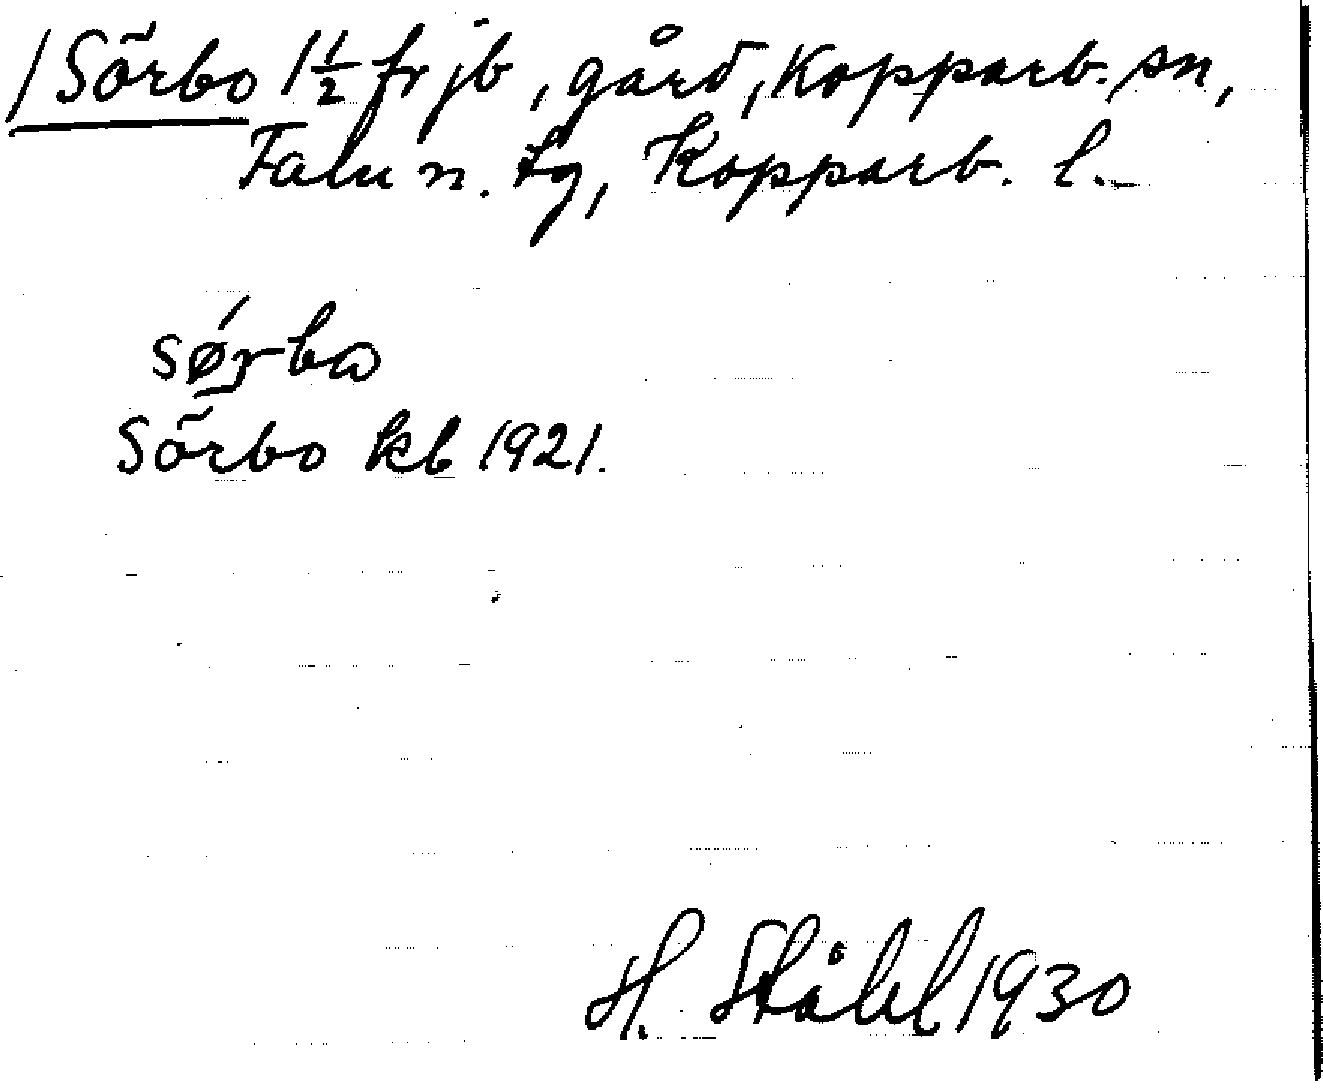 /Sörbo 1½ fr jb, gård, Kopparb. sn,
Falu n. tg, Kopparb. l.
sørbω
Sörbo kb 1921.
H. Ståhl 1930